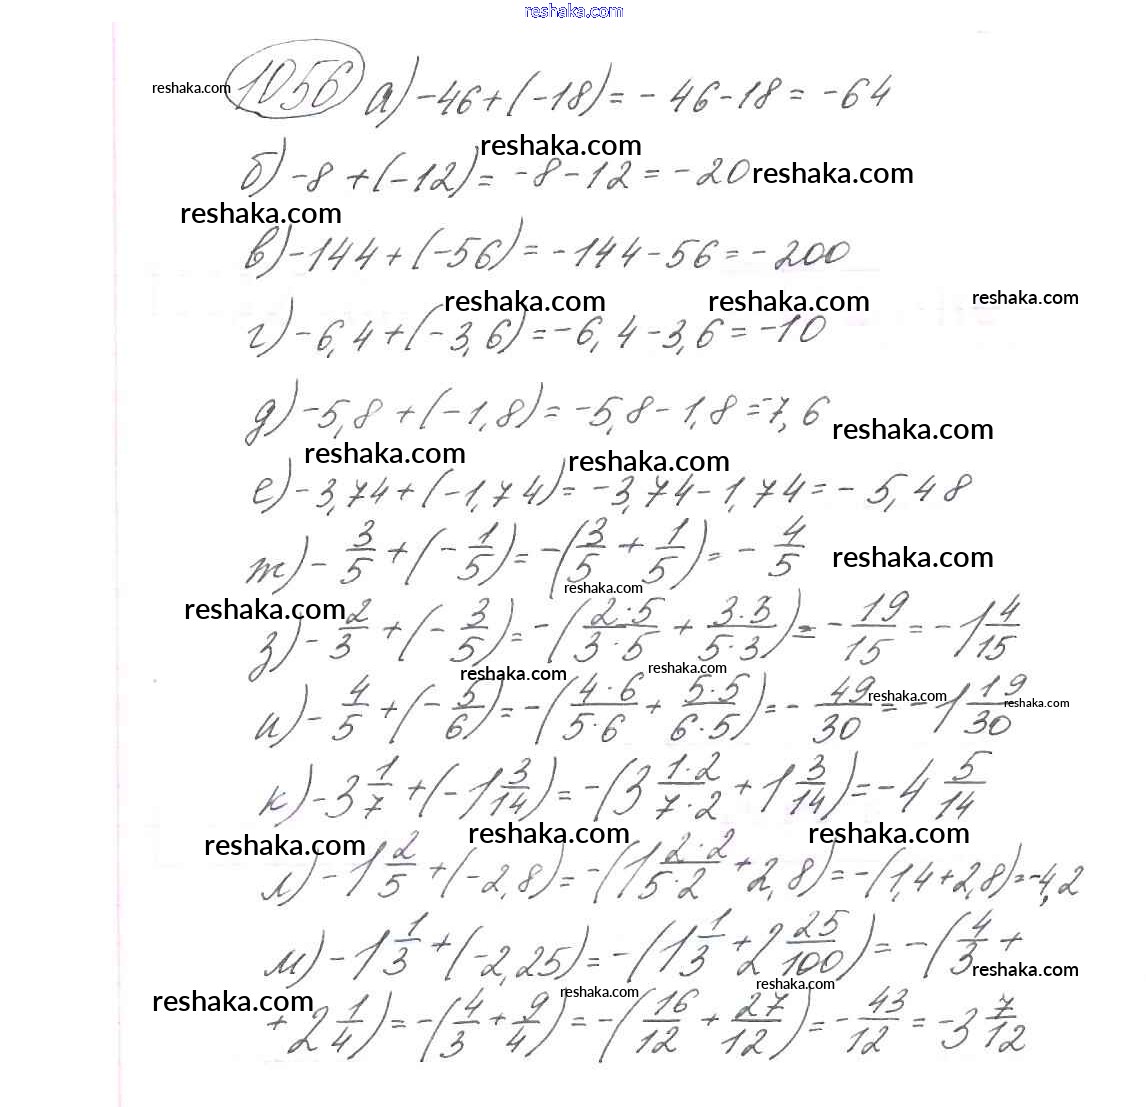 reshaka.com
1056 а) -46+(-18) = -46-18 = -64
reshaka.com
reshaka.com
б) -8+(-12) = -8-12 = -20
reshaka.com
reshaka.com
в) -144+(-56) = -144-56 = -200
reshaka.com reshaka.com reshaka.com
г) -6,4+(-3,6) = -6,4-3,6 = -10
д) -5,8+(-1,8) = -5,8-1,8 = -7,6
reshaka.com
reshaka.com reshaka.com
е) -3,74+(-1,74) = -3,74-1,74 = -5,48
ж) -3/5+(-1/5) = -(3/5+1/5) = -4/5
reshaka.com
reshaka.com
reshaka.com
з) -2/3+(-3/5) = -(2·5/3·5+3·3/5·3) = -19/15 = -1 4/15
reshaka.com reshaka.com
и) -4/5+(-5/6) = -(4·6/5·6+5·5/6·5) = -49/30 = -1 19/30
reshaka.com reshaka.com
к) -3 1/7+(-1 3/14) = -(3 1·2/7·2+1 3/14) = -4 5/14
reshaka.com reshaka.com reshaka.com
л) -1 2/5+(-2,8) = -(1 2·2/5·2+2,8) = -(1,4+2,8) = -4,2
м) -1 1/3+(-2,25) = -(1 1/3+2 25/100) = -(4/3+
reshaka.com
reshaka.com reshaka.com reshaka.com
+2 1/4) = -(4/3+9/4) = -(16/12+27/12) = -43/12 = -3 7/12